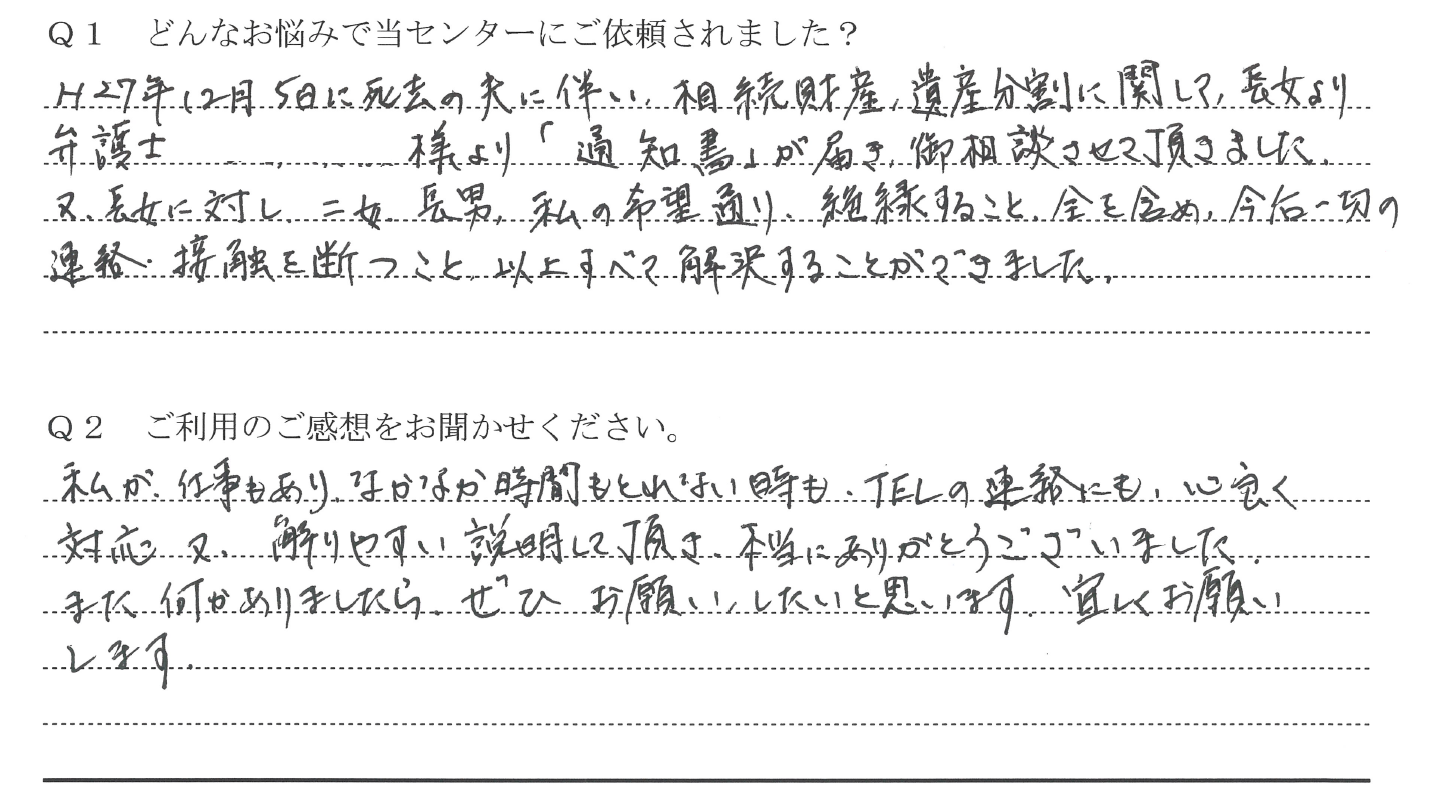 Q1 どんなお悩みで当センターにご依頼されました?
H27年12月5日に死去の夫に伴い、相続財産、遺産分割に関して、長女より
弁護士 様より「通知書」が届き、御相談させて頂きました。
又、長女に対し、二女、長男、私の希望通り、絶縁すること、全を含め、今后一切の
連絡・接触を断つこと、以上すべて解決することができました。
Q2 ご利用のご感想をお聞かせください。
私が、仕事もあり、なかなか時間もとれない時も、TELの連絡にも、心良く
対応 又、解りやすい説明して頂き、本当にありがとうございました。
また何かありましたら、ぜひお願いしたいと思います。宜しくお願い
します。